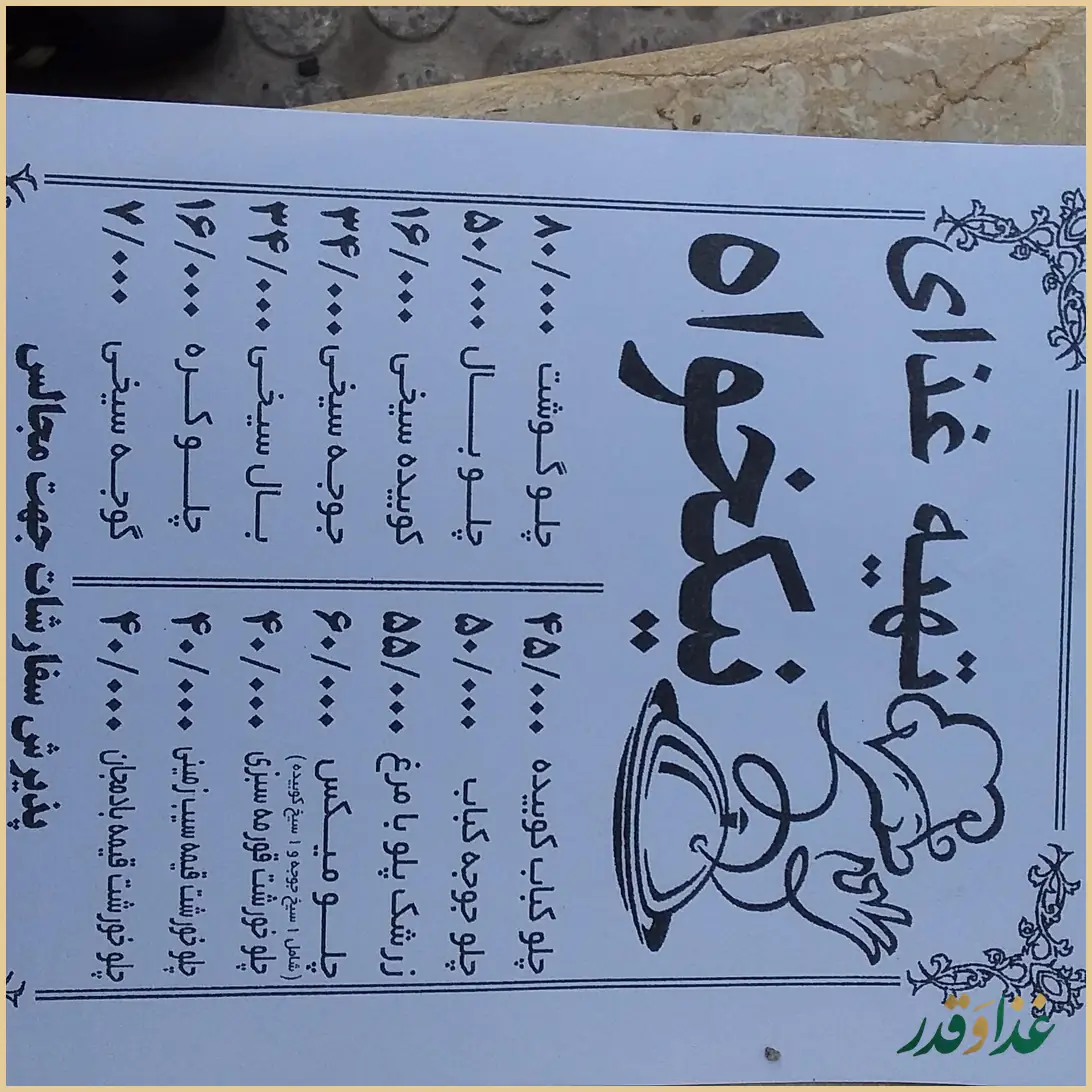 تهیه غذای
نیکخواه
چلو کباب کوبیده ۴۵/۰۰۰
چلو جوجه کباب ۵۰/۰۰۰
زرشک پلو با مرغ ۵۵/۰۰۰
چلو میکس ۶۰/۰۰۰
(شامل ۱ سیخ جوجه و ۱ سیخ کوبیده)
چلو خورشت قورمه سبزی ۴۰/۰۰۰
چلو خورشت قیمه سیب زمینی ۴۰/۰۰۰
چلو خورشت قیمه بادمجان ۴۰/۰۰۰
چلو گوشت ۸۰/۰۰۰
چلو بال ۵۰/۰۰۰
کوبیده سیخی ۱۶/۰۰۰
جوجه سیخی ۳۴/۰۰۰
بال سیخی ۳۴/۰۰۰
چلو کره ۱۶/۰۰۰
گوجه سیخی ۷/۰۰۰
پذیرش سفارشات جهت مجالس
غذا و قدر